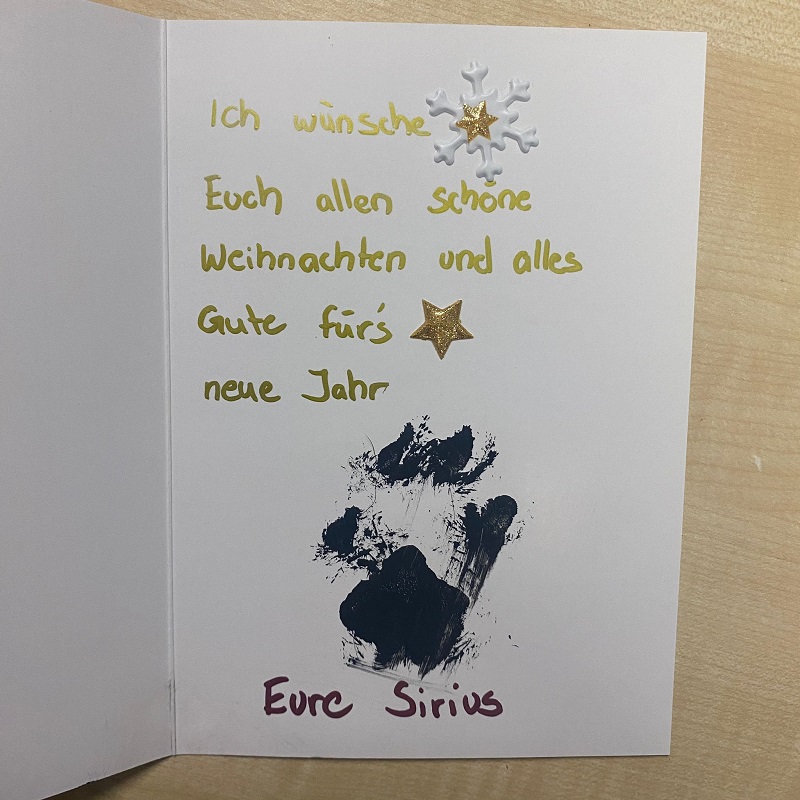 Ich wünsche
Euch allen schöne
Weihnachten und alles
Gute für's
neue Jahr
Eure Sirius